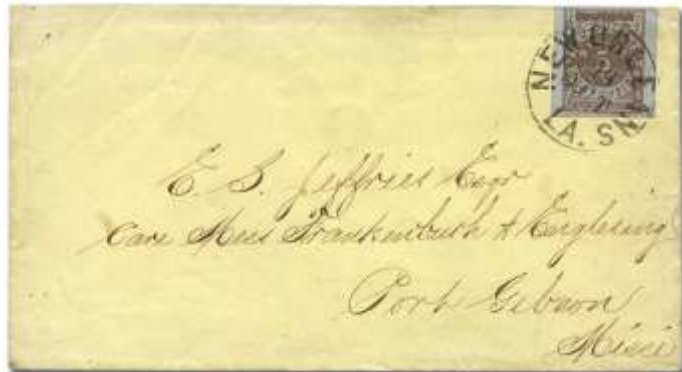 NEW ORLEANS
LA.
5
E. S. Jeffries Esqr
Care Mess Frankenbush & Englesing
Port Gibson
Missi